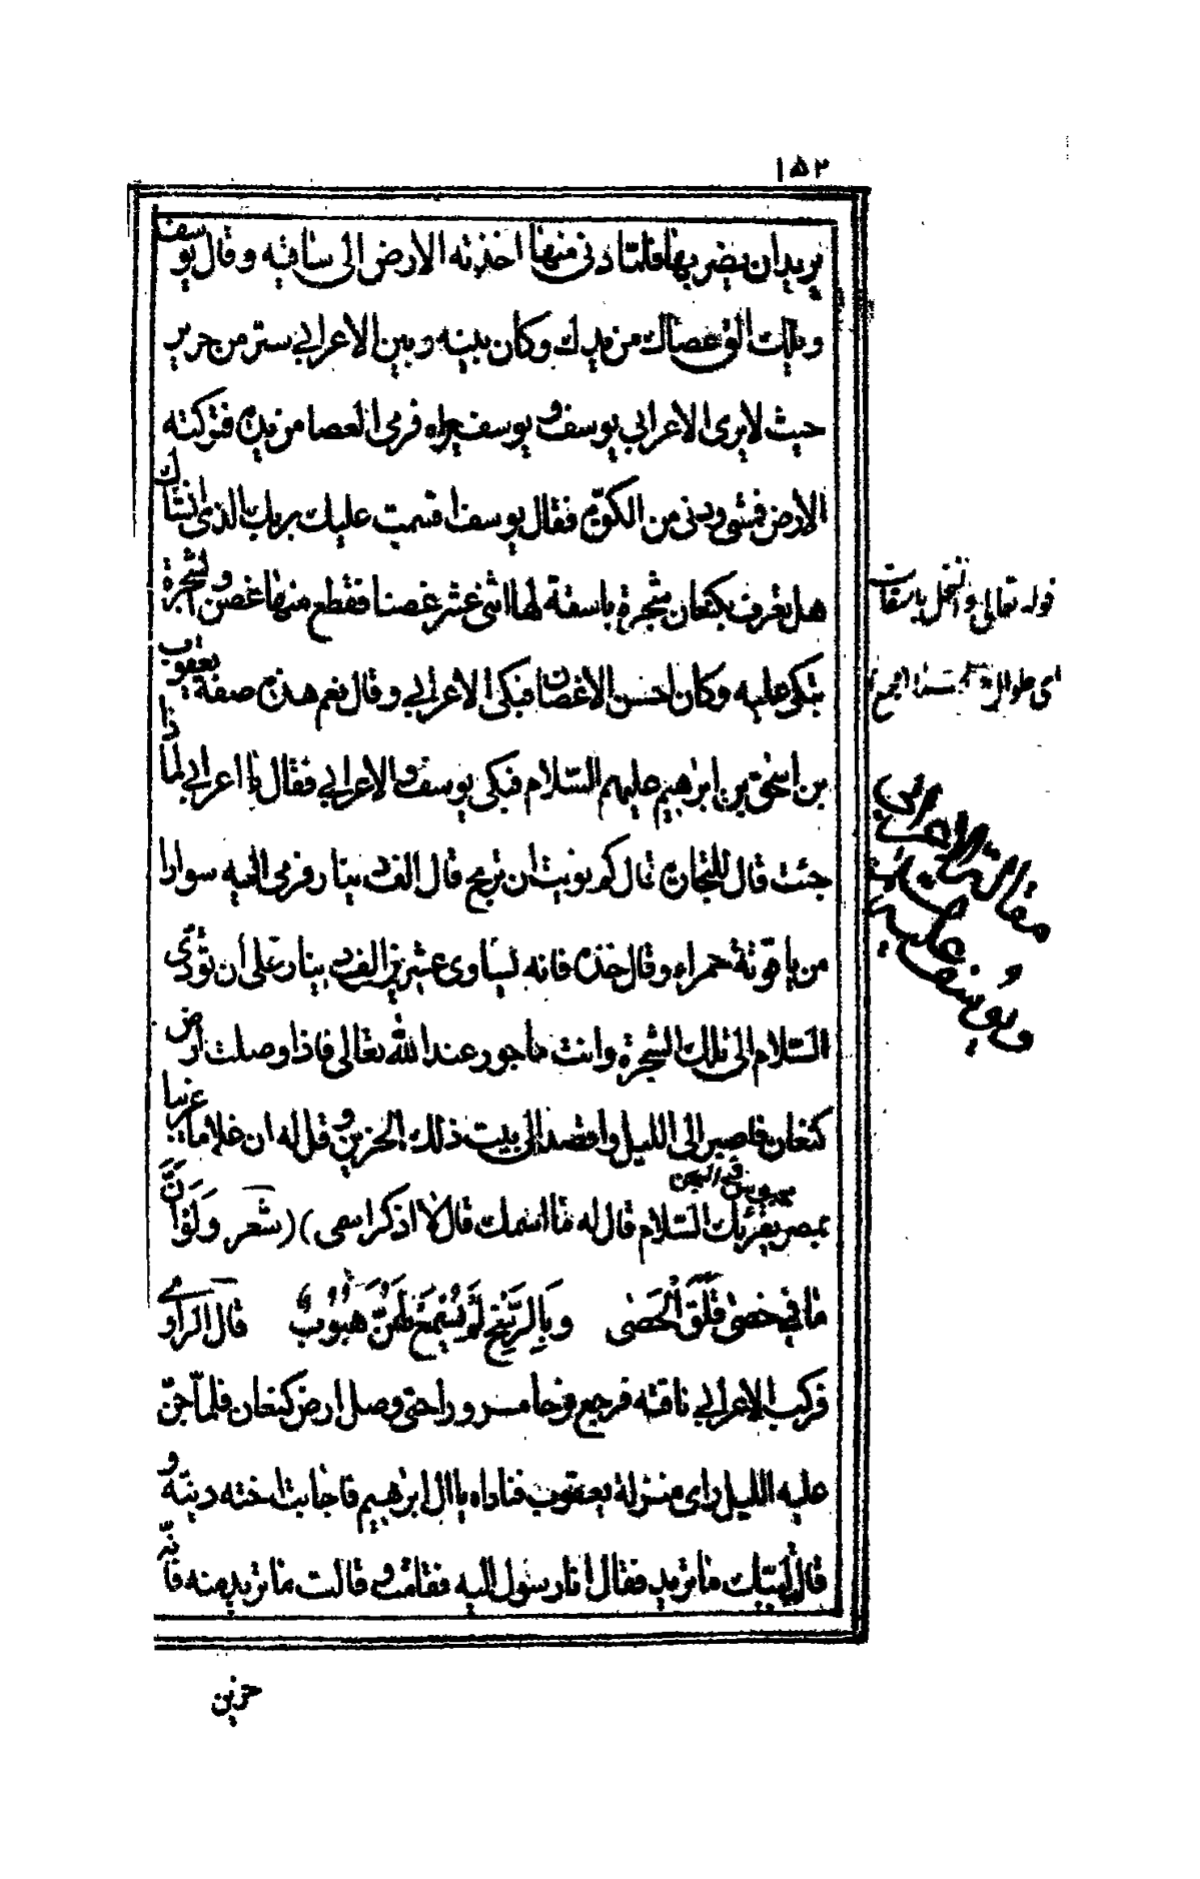 ١٥٢
يريد ان يضربها فلما دنى منها اخذته الارض الى ساقيه وقال يوسف
ويلك الق عصاك من يدك وكان بينه وبين الاعرابي ستر من حرير
حيث لا يرى الاعرابي يوسف ويوسف يراه فرمى العصا من يده فتركته
الارض فمشى ودنى من الكوة فقال يوسف اقسمت عليك بربك الذى انشاك
هل تعرف بكنعان شجرة باسقة لها اثنى عشر غصنا فقطع منها غصن والشجرة
تبكى عليه وكان احسن الاغصان فبكى الاعرابي وقال نعم هذه صفة يعقوب
بن اسحق بن ابرهيم عليهم السلام فبكى يوسف والاعرابي فقال يا اعرابي لماذا
جئت قال للتجارة قال كم نويت ان تربح قال الف دينار فرمى اليه سوارا
من ياقوتة حمراء وقال خذه فانه يساوى عشرين الف دينار على ان تؤدى
السلام الى تلك الشجرة وانت ماجور عند الله تعالى فاذا وصلت ارض
كنعان فاصبر الى الليل واقصد الى بيت ذلك الحزين وقل له ان غلاما غريبا
بمصر يقرئك السلام قال له ما اسمك قال لا اذكر اسمى ) ( شعر ولو ان
ما في خصى فلق الحصى وبالريح لم يسمع لهن هبوب قال الراوى
فركب الاعرابي ناقته فرجع فرحا مسرورا حتى وصل ارض كنعان فلما جن
عليه الليل راى منزلة يعقوب فناداه يا ال ابرهيم فاجابت اخته دينه و
قال لبيك ما تريد فقال انا رسول اليه فقامت وقالت ما تريد منه فانه
حزين
قوله تعالى والنخل باسقات
اى طوالا
مقالة الاعرابي
ويوسف عليه